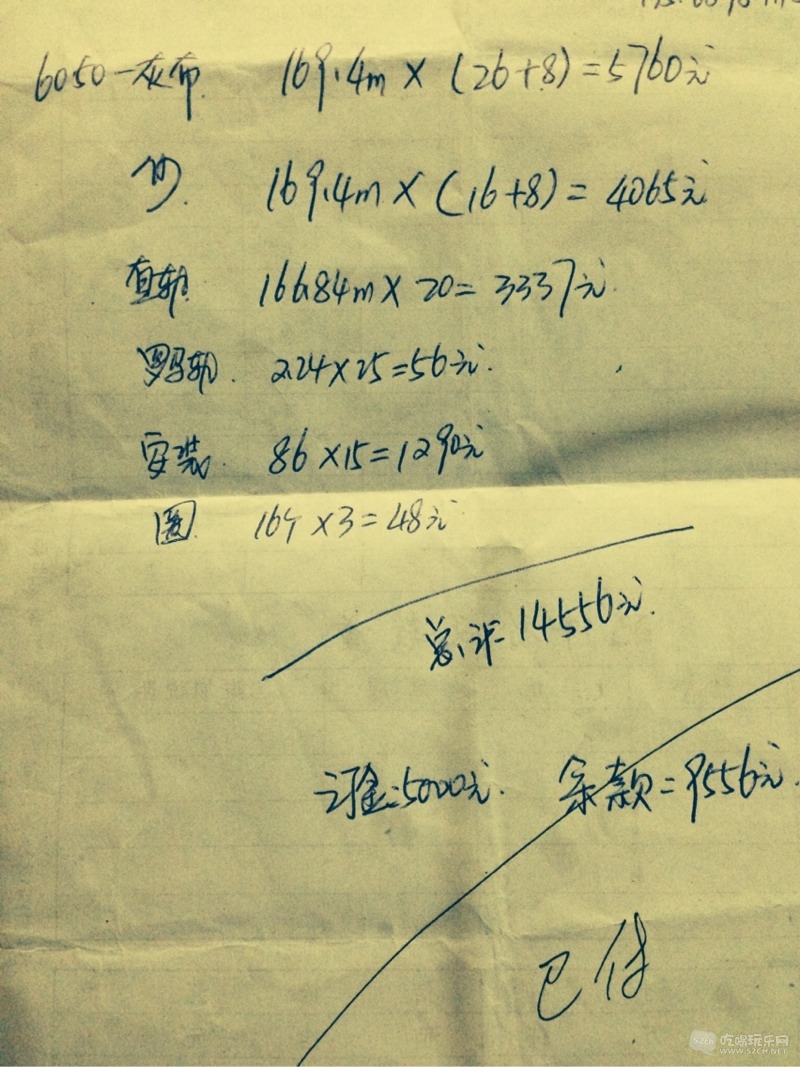 6050-灰布 169.4m × (26+8)=5760元
纱. 169.4m × (16+8)=4065元
直轨 166.84m × 20=3337元
罗马轨. 2.24×25=56元.
安装. 86×15=1290元
圈 16个×3=48元
总计=14556元.
订金:5000元. 余款=9556元.
已付
吃喝玩乐网
WWW.SZCH.NET